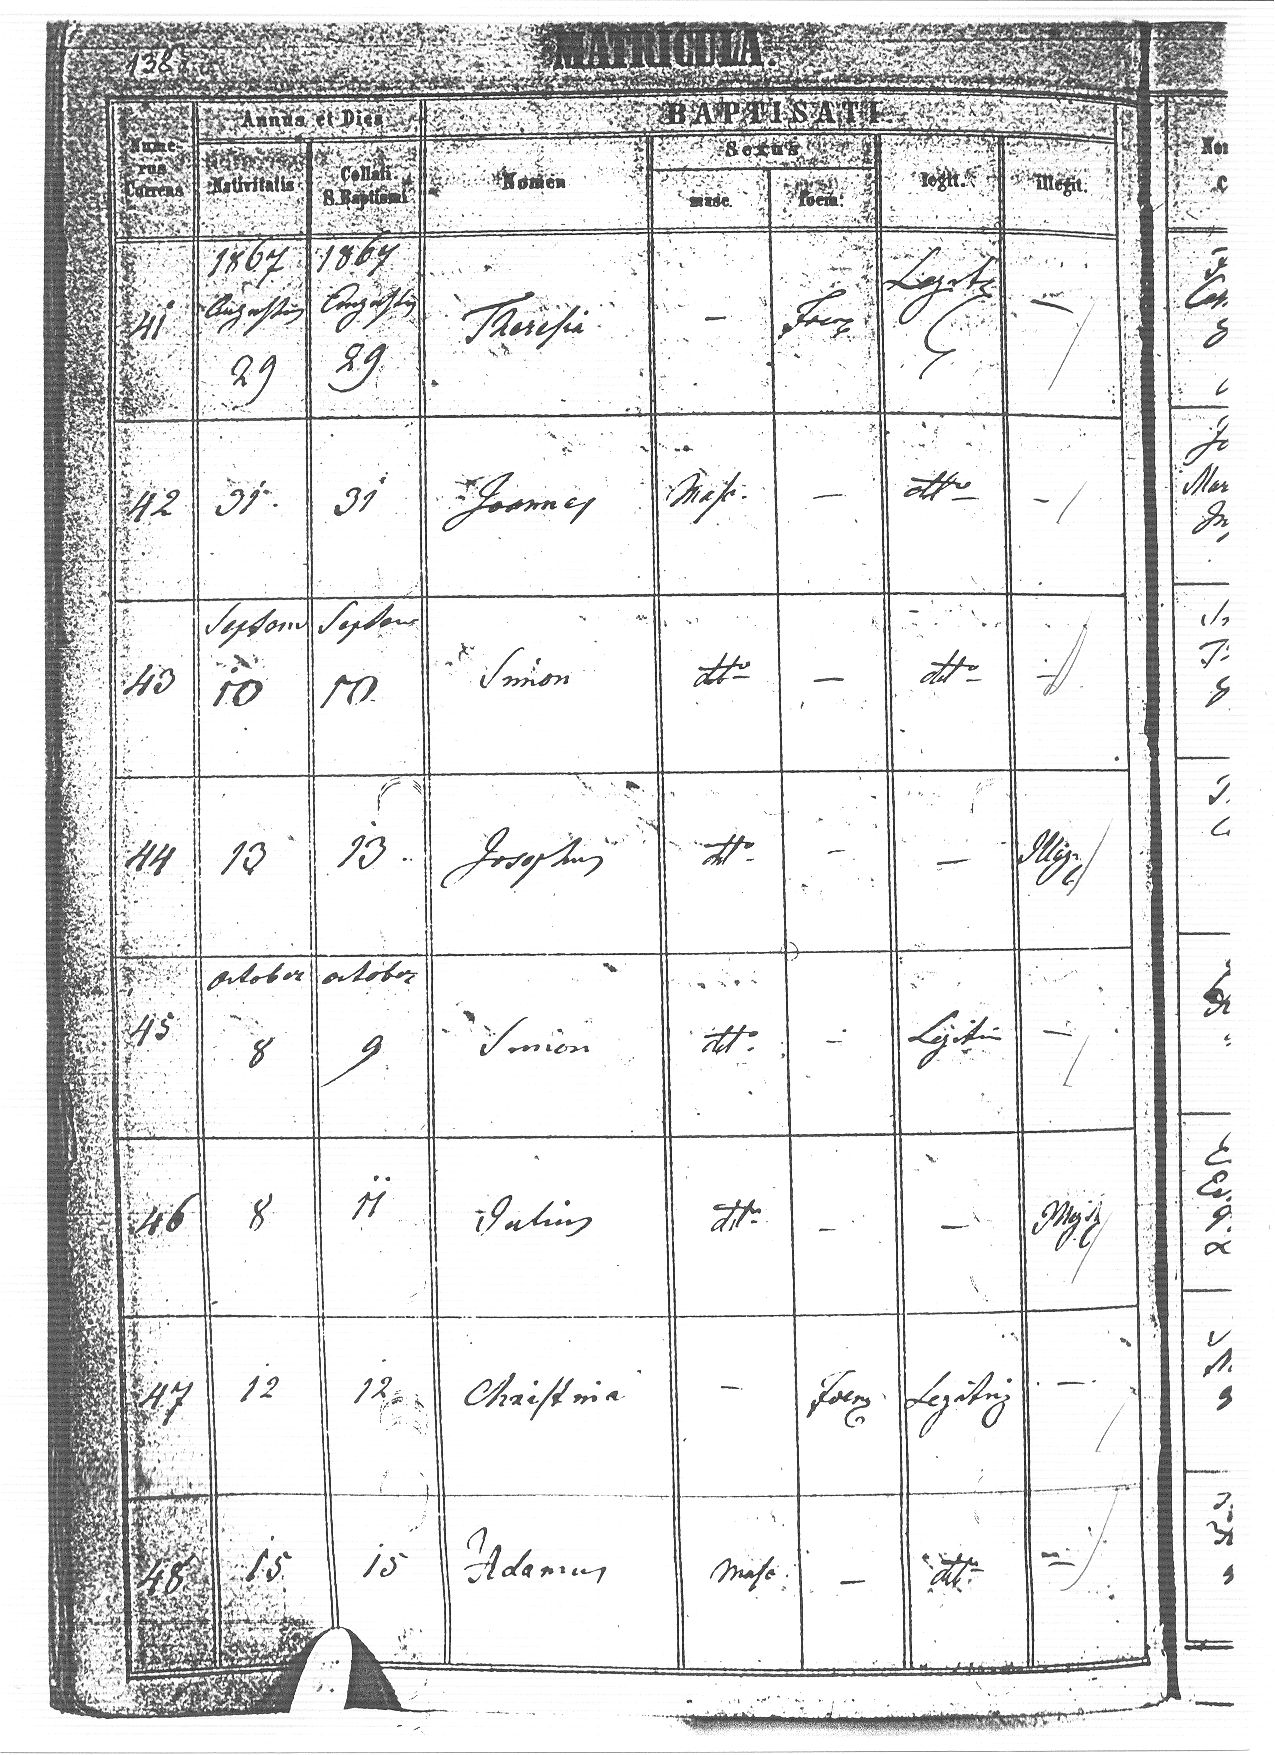 138
MATRICULA.
Nume-
rus
Currens
Annus et Dies
Nativitatis
Collati
S. Baptismi
BAPTISATI
Nomen
Sexus
masc.
foem.
legit.
illegit.
41 1867 Augustus 29 1867 Augustus 29 Theresia — Foem —
42 31. 31 Joannes Masc. — dtto —
43 Septem 10 Septem 10 Simon dtto — dtto —
44 13 13. Josephus dtto — — Illeg.
45 October 8 October 9 Simion dtto — Legitim —
46 8 11 Julius dtto — —
47 12 12 Christina — Foem —
48 15 15 Adamus Masc. — dtto —